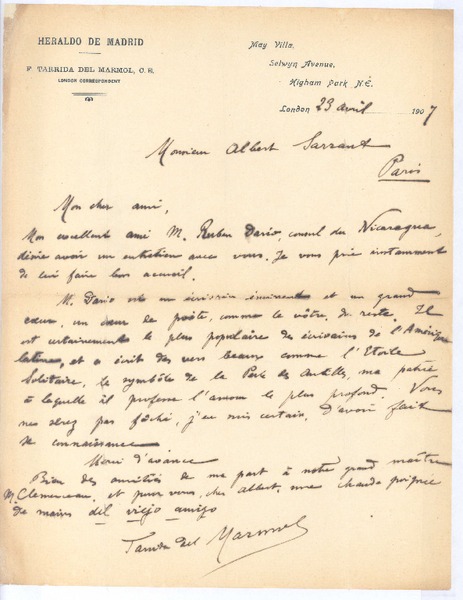 HERALDO DE MADRID
F. TARRIDA DEL MARMOL, C. E.
LONDON CORRESPONDENT
May Villa,
Selwyn Avenue,
Higham Park N.E.
London 23 avril 1907
Monsieur Albert Sarraut
Paris
Mon cher ami,
Mon excellent ami M. Ruben Dario, consul du Nicaragua,
désire avoir un entretien avec vous. Je vous prie instamment
de lui faire bon accueil.
M. Dario est un écrivain éminent et un grand
cœur, un cœur de poète, comme le vôtre, du reste. Il
est certainement le plus populaire des écrivains de l'Amérique
latine, et a écrit des vers beaux comme l'Etoile
Solitaire, le symbole de la Perle des Antilles, ma patrie
à laquelle il professe l'amour le plus profond. Vous
ne serez pas fâché, j'en suis certain, d'avoir fait
sa connaissance.
Merci d'avance
Bien des amitiés de ma part à notre grand maître
M. Clemenceau, et pour vous, cher Albert, une chaude poignée
de mains del viejo amigo
Tarrida del Marmol